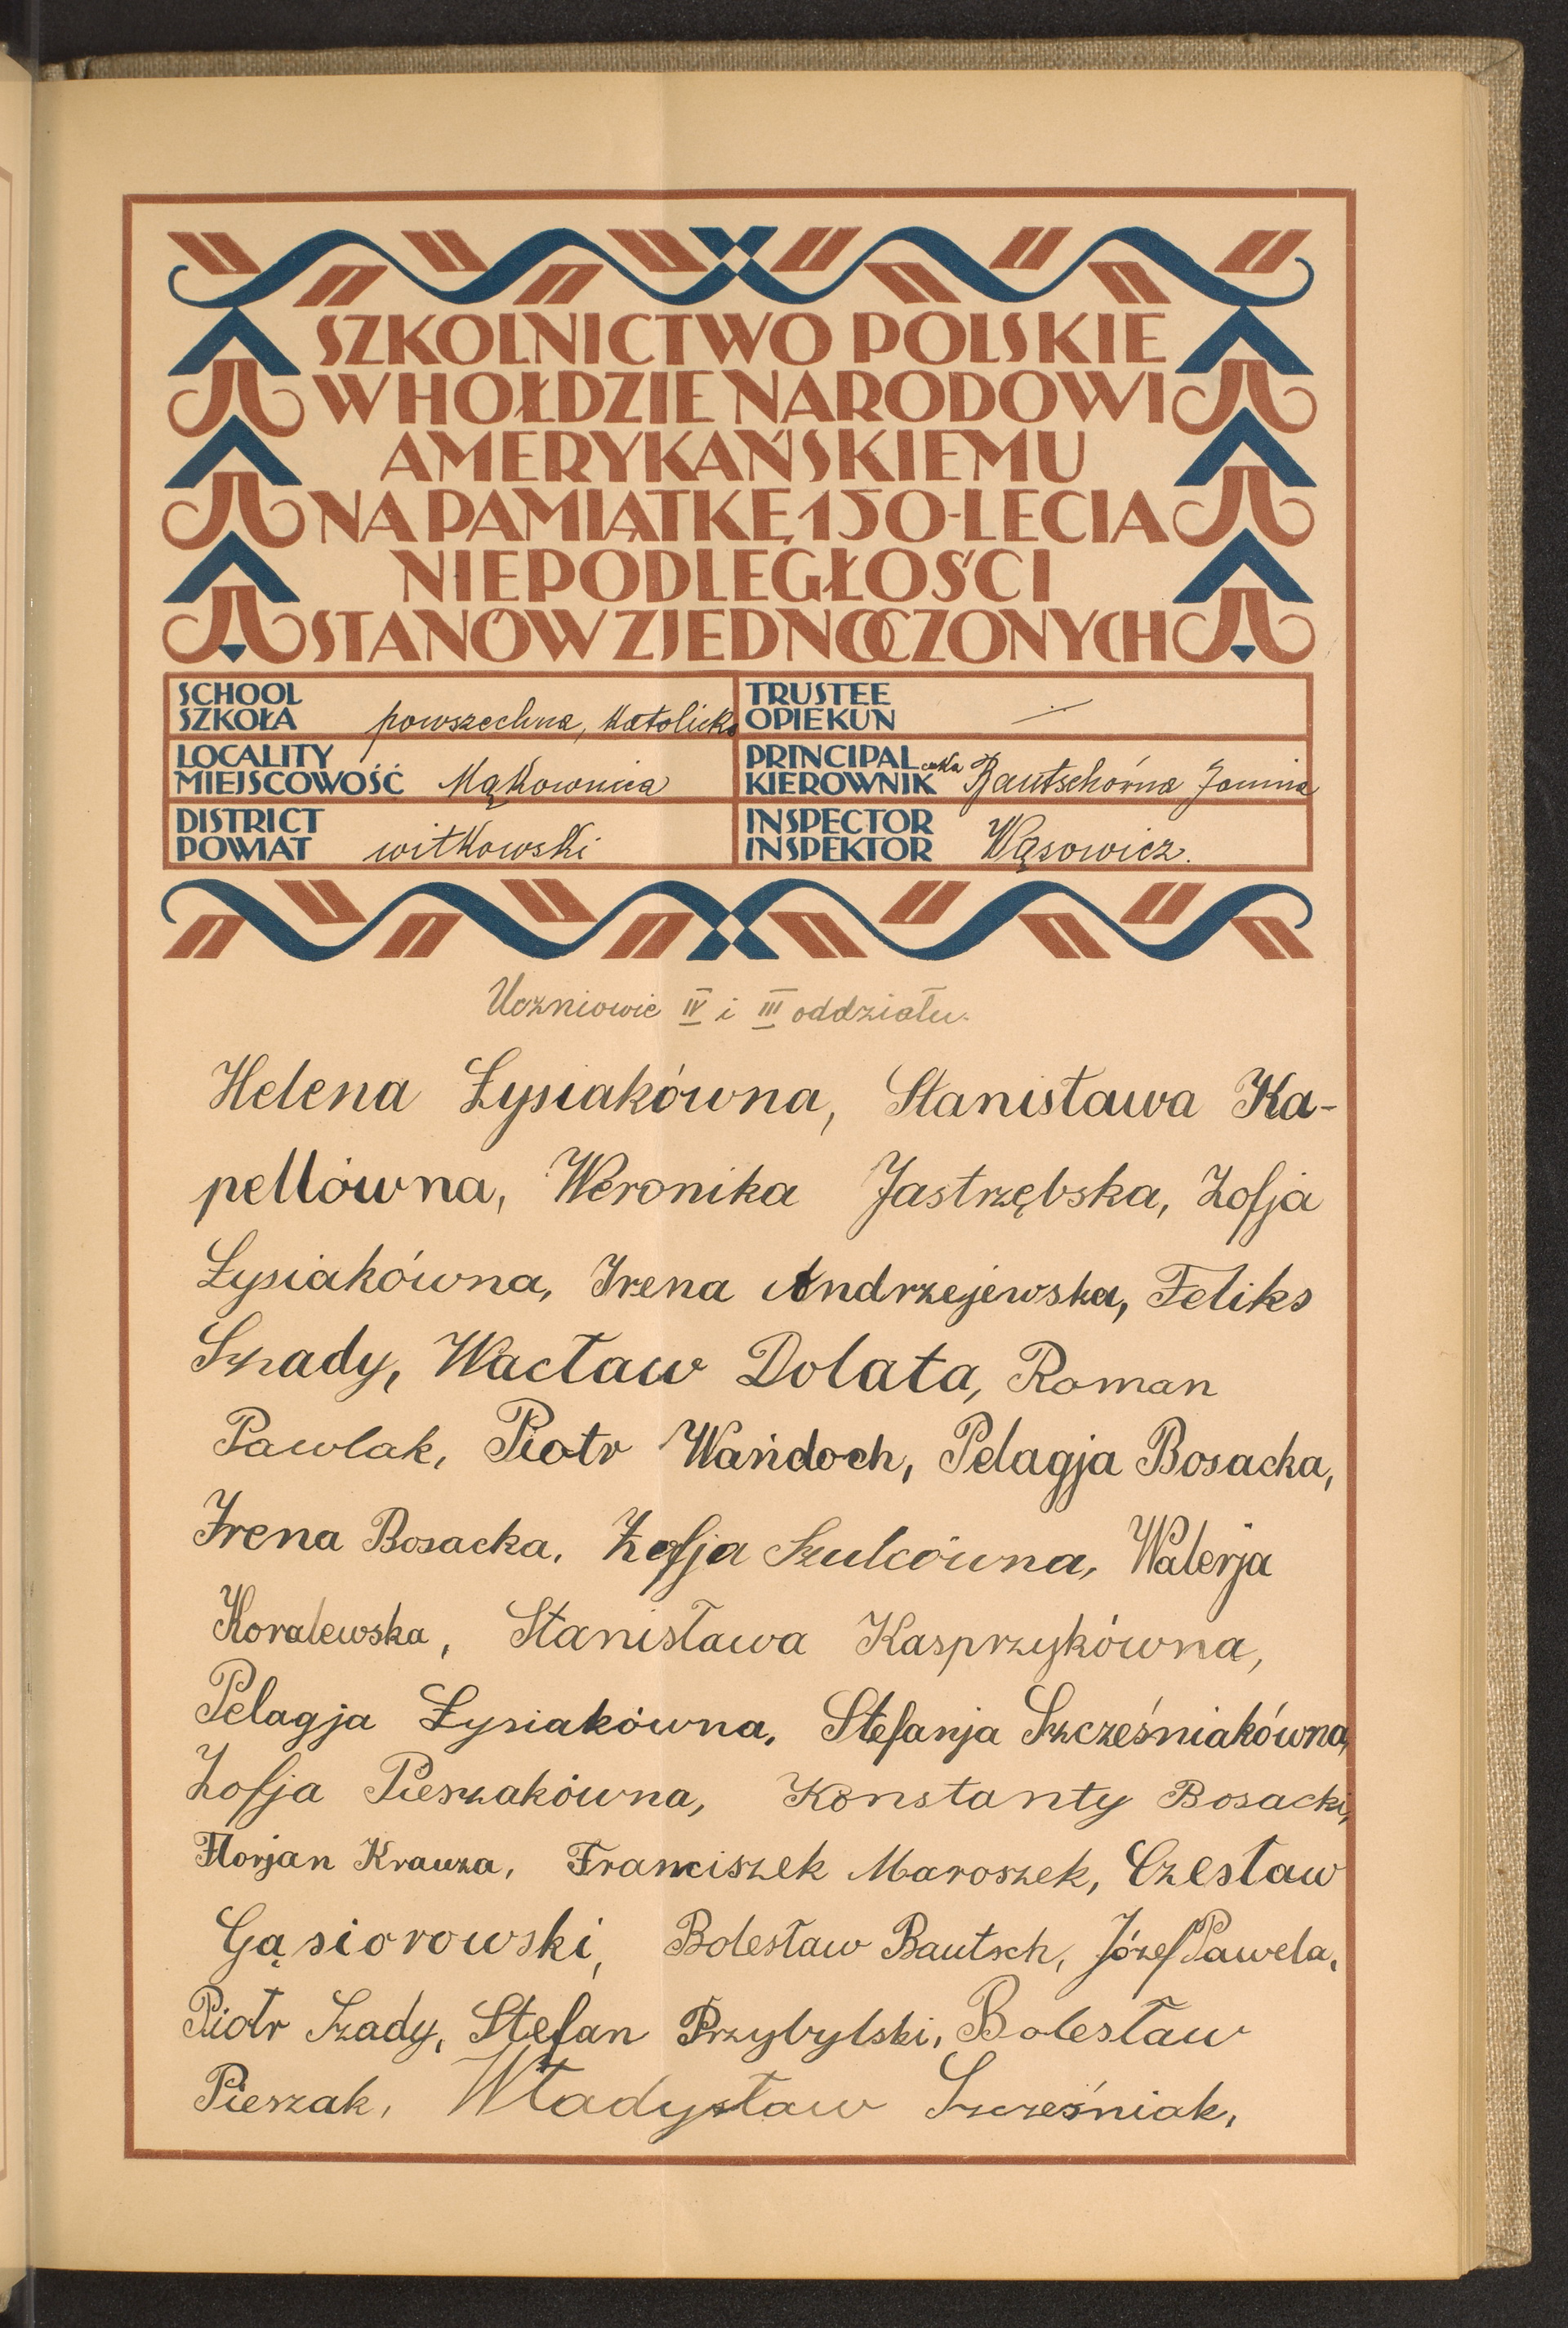 SZKOLNICTWO POLSKIE
W HOŁDZIE NARODOWI
AMERYKAŃSKIEMU
NA PAMIĄTKĘ 150-LECIA
NIEPODLEGŁOŚCI
STANÓW ZJEDNOCZONYCH
SCHOOL
SZKOŁA powszechna, katolicka
TRUSTEE
OPIEKUN —
LOCALITY
MIEJSCOWOŚĆ Mąkownica
PRINCIPAL
KIEROWNIK czka Bautschówna Janina
DISTRICT
POWIAT witkowski
INSPECTOR
INSPEKTOR Wąsowicz.
Uczniowie IV i III oddziału.
Helena Łysiakówna, Stanisława Ka-
pellówna, Weronika Jastrzębska, Zofja
Łysiakówna, Irena Andrzejewska, Feliks
Szady, Wacław Dolata, Roman
Pawlak, Piotr Wańdoch, Pelagja Bosacka,
Irena Bosacka, Zofja Szulcówna, Walerja
Koralewska, Stanisława Kasprzykówna,
Pelagja Łysiakówna, Stefanja Szcześniakówna,
Zofja Pieszakówna, Konstanty Bosacki,
Florjan Krauza, Franciszek Maroszek, Czesław
Gąsiorowski, Bolesław Bautsch, Józef Pawela,
Piotr Szady, Stefan Przybylski, Bolesław
Pieszak, Władysław Szcześniak,